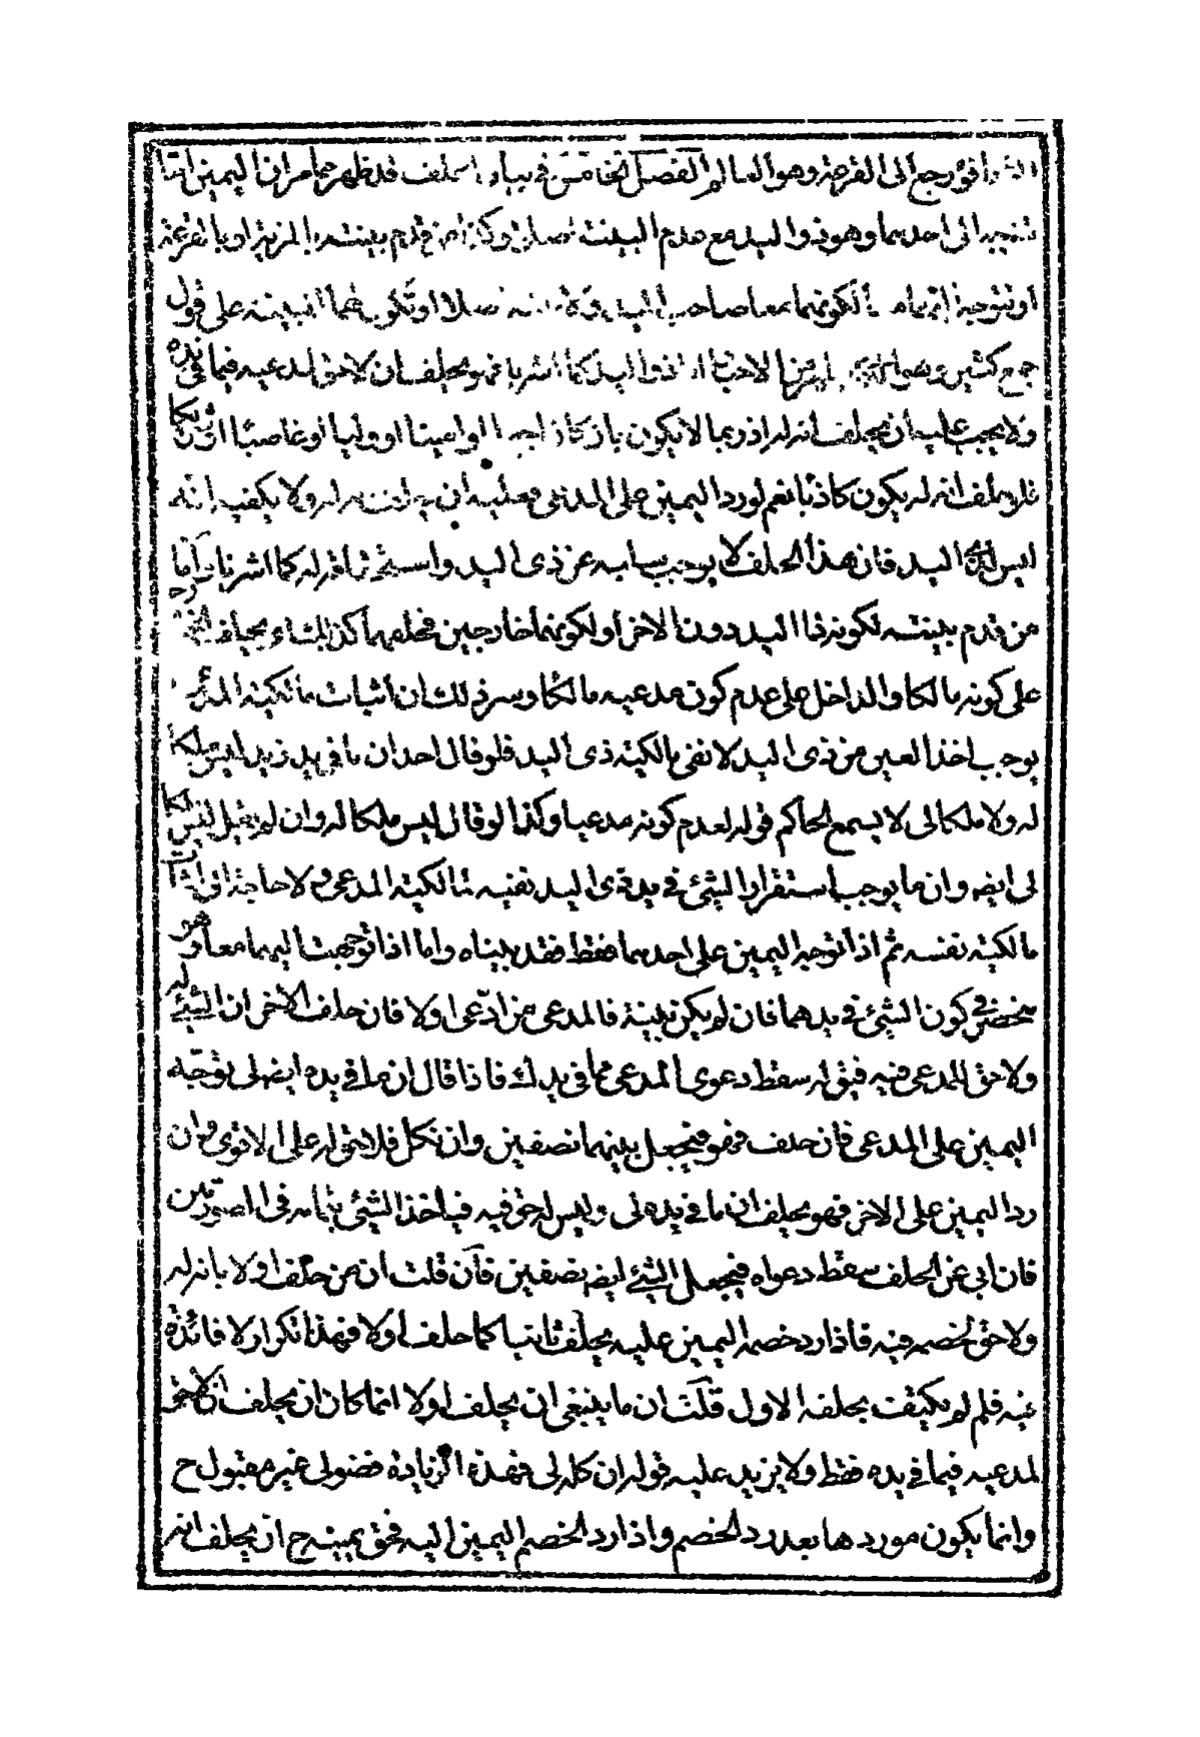 رجع الى القرعة وهو العالم الفصل الخامس في بيان الحلف قد ظهر مما مر ان اليمين اما
تتوجه الى احدهما وهو ذو اليد مع عدم البينة اصلا او من قدم بينته او بالقرعة
او تتوجه اليهما لكونهما معا صاحب اليد اصلا او تكون لهما البينة على قول
جمع كثير ذو اليد كما اشرنا فهو يحلف ان لا حق لمدعيه فيما في يده
ولا يجب عليه ان يحلف انه له اذ ربما لا يكون له او امينا او وليا او غاصبا
فلو حلف انه له يكون كاذبا نعم لو رد اليمين على المدعي فعليه ان يحلف انه له ولا يكفيه انه
ليس لذي اليد فان هذا الحلف لا يوجب سلبه عن ذي اليد كما اشرنا واما
من قدم بينته لكونه ذا اليد دون الاخر او لكونهما خارجين فحلفهما كذلك يحلف الخارج
على كونه مالكا والداخل على عدم كون مدعيه مالكا وسر ذلك ان اثبات مالكية المدعي
يوجب اخذ العين من ذي اليد لا نفي مالكية ذي اليد فلو قال احد ان ما في يد زيد ليس ملكا
له ولا ملكا لي لا يسمع الحاكم قوله لعدم كونه مدعيا وكذا لو قال ليس ملكا له وان لم يقل ليس ملكا
لي ايضه وان ما يوجب استقرار الشيء في يد ذي اليد نفيه مالكية المدعي ولا حاجة الى اثبات
مالكية نفسه ثم اذا توجه اليمين على احدهما فقط فقد بيناه واما اذا توجهت اليهما معا وهو
منحصر في كون الشيء في يدهما فان لم يكن بينة فالمدعي من ادعى اولا فان حلف الاخر ان الشيء له
ولا حق للمدعي فيه فيق له سقط دعوى المدعي مما في يدك فاذا قال ان ما في يده ايضه لي توجه
اليمين على المدعي فان حلف فهو فيجعل بينهما نصفين وان نكل فلا حق له على الاقوى وان
رد اليمين على الاخر فهو يحلف ان ما في يده لي وليس له حق فيه فياخذ الشيء بتمامه في الصورتين
فان ابى عن الحلف سقط دعواه فيجعل الشيء ايضه نصفين فان قلت ان من حلف اولا بانه له
ولا حق لخصمه فيه فاذا رد خصمه اليمين عليه يحلف ثانيا كما حلف اولا فهذا تكرار لا فائدة
فيه فلم لم يكتف بحلفه الاول قلت ان ما ينبغي ان يحلف اولا انما كان ان يحلف ان لا حق
لمدعيه فيما في يده فقط ولا يزيد عليه قوله ان كله لي فهذه الزيادة فضولي غير مقبول ح
وانما يكون موردها بعد رد الخصم واذا رد الخصم اليمين اليه فحق يمينه ح ان يحلف انه